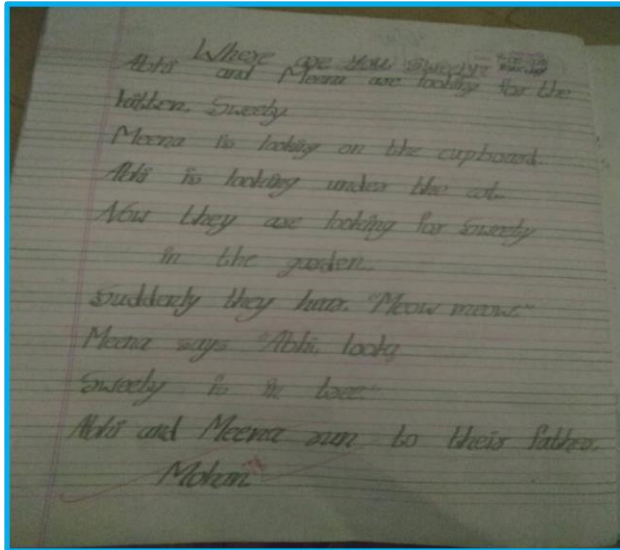 Where are you Sweety
Abhi and Meena are looking for the
kitten. Sweety
Meena is looking on the cupboard.
Abhi is looking under the cot.
Now they are looking for Sweety
in the garden.
Suddenly they hear. "Meow meow."
Meena says "Abhi. look
Sweety is in tree."
Abhi and Meena run to their father.
Mohan